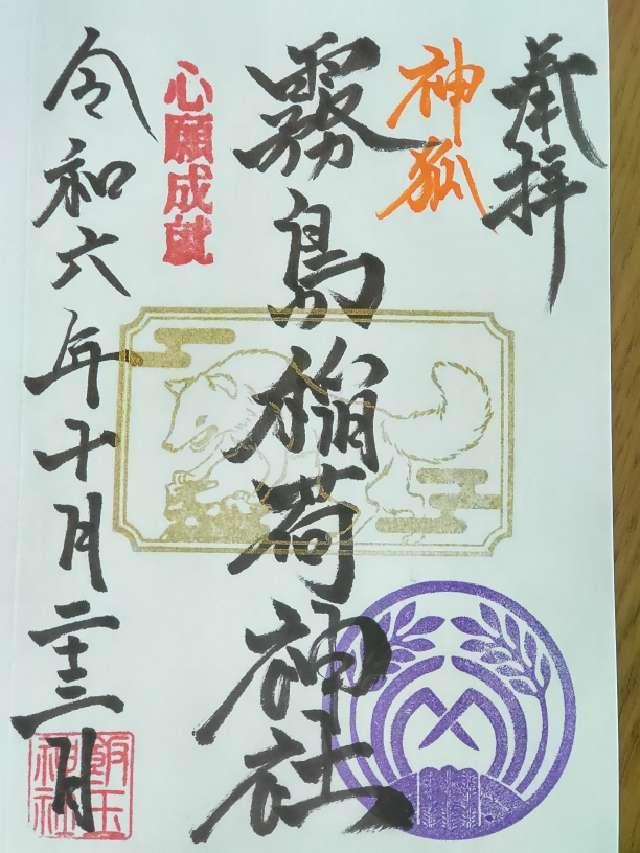 奉拝
神狐
霧島稲荷神社
心願成就
令和六年十月二十三日
飯玉
神社